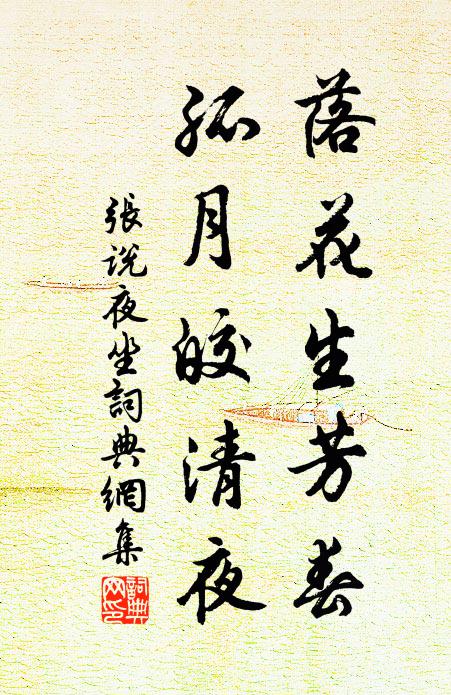 落花生芳春
孤月皎清夜
張說夜坐詞典網集
詞典网印